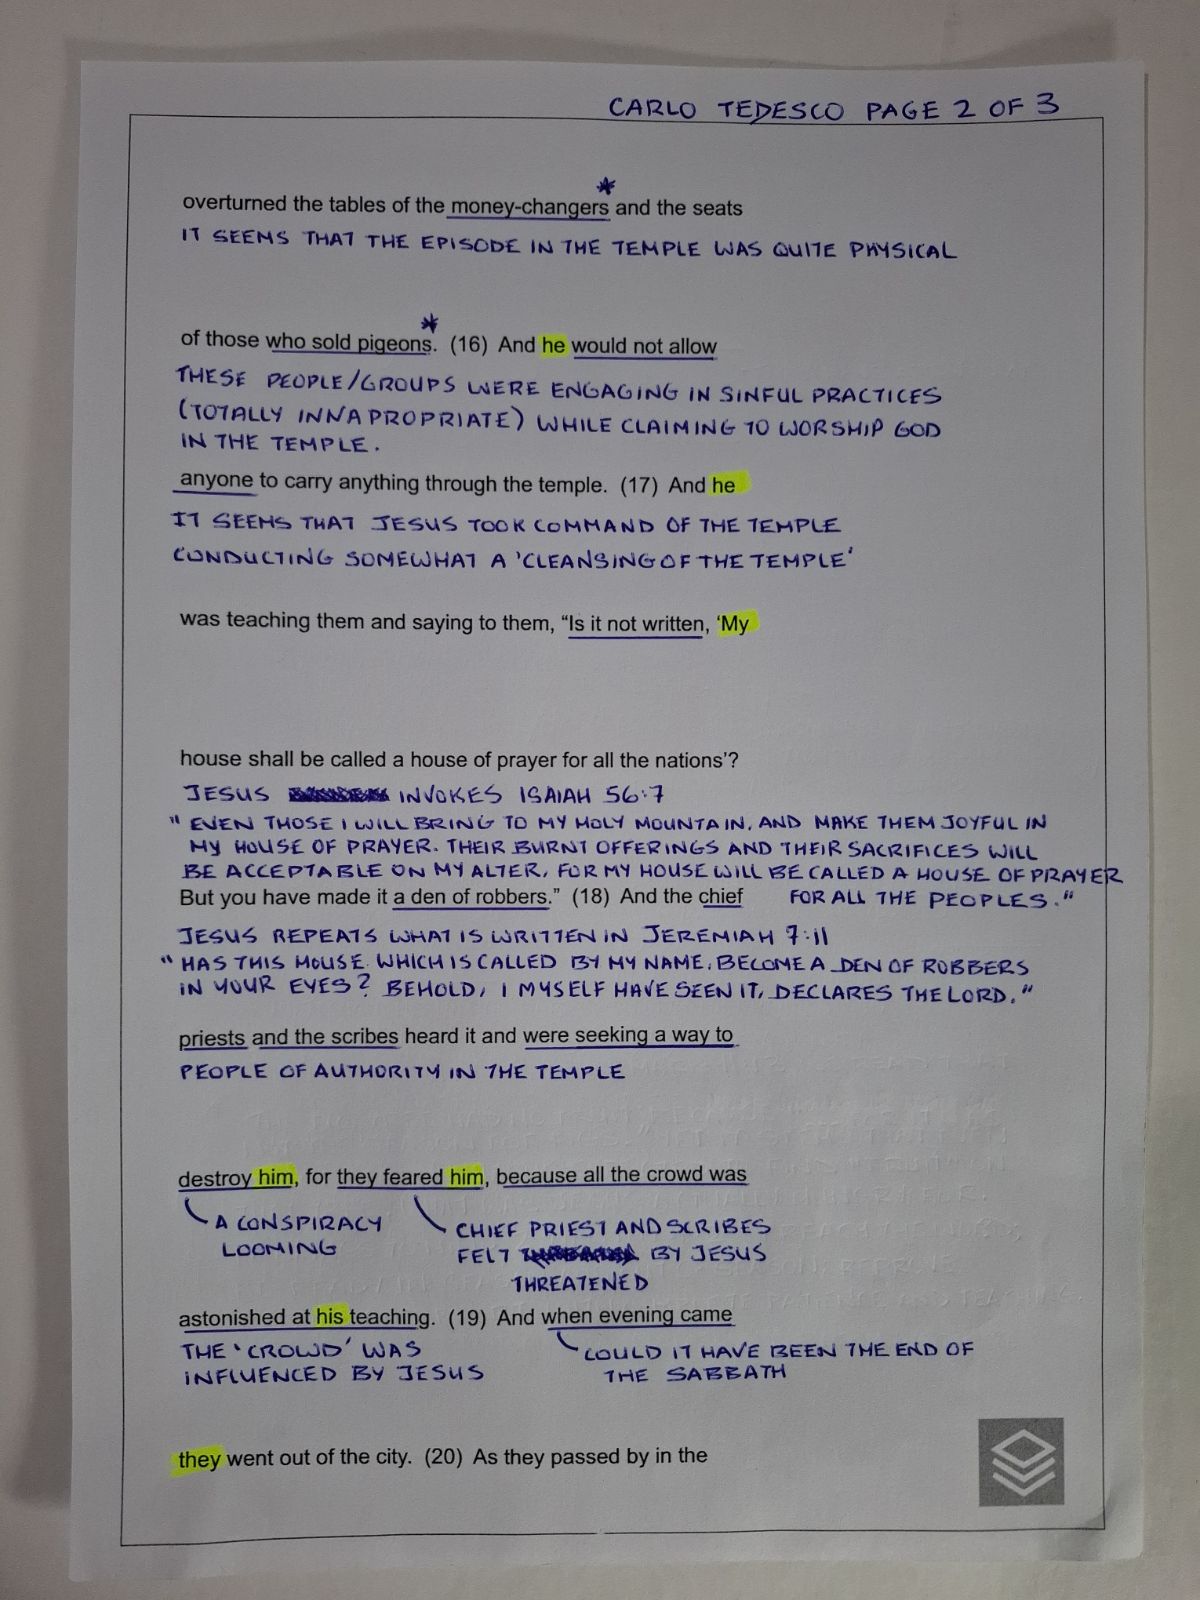 CARLO TEDESCO PAGE 2 OF 3
overturned the tables of the money-changers and the seats
IT SEEMS THAT THE EPISODE IN THE TEMPLE WAS QUITE PHYSICAL
of those who sold pigeons. (16) And he would not allow
THESE PEOPLE/GROUPS WERE ENGAGING IN SINFUL PRACTICES
(TOTALLY INNAPROPRIATE) WHILE CLAIMING TO WORSHIP GOD
IN THE TEMPLE.
anyone to carry anything through the temple. (17) And he
IT SEEMS THAT JESUS TOOK COMMAND OF THE TEMPLE
CONDUCTING SOMEWHAT A 'CLEANSING OF THE TEMPLE'
was teaching them and saying to them, “Is it not written, ‘My
house shall be called a house of prayer for all the nations’?
JESUS INVOKES ISAIAH 56:7
" EVEN THOSE I WILL BRING TO MY HOLY MOUNTAIN, AND MAKE THEM JOYFUL IN
MY HOUSE OF PRAYER. THEIR BURNT OFFERINGS AND THEIR SACRIFICES WILL
BE ACCEPTABLE ON MY ALTER, FOR MY HOUSE WILL BE CALLED A HOUSE OF PRAYER
FOR ALL THE PEOPLES."
But you have made it a den of robbers.” (18) And the chief
JESUS REPEATS WHAT IS WRITTEN IN JEREMIAH 7:11
" HAS THIS HOUSE. WHICH IS CALLED BY MY NAME, BECOME A DEN OF ROBBERS
IN YOUR EYES? BEHOLD, I MYSELF HAVE SEEN IT, DECLARES THE LORD."
priests and the scribes heard it and were seeking a way to
PEOPLE OF AUTHORITY IN THE TEMPLE
destroy him, for they feared him, because all the crowd was
A CONSPIRACY
LOOMING
CHIEF PRIEST AND SCRIBES
FELT BY JESUS
THREATENED
astonished at his teaching. (19) And when evening came
THE 'CROWD' WAS
INFLUENCED BY JESUS
COULD IT HAVE BEEN THE END OF
THE SABBATH
they went out of the city. (20) As they passed by in the